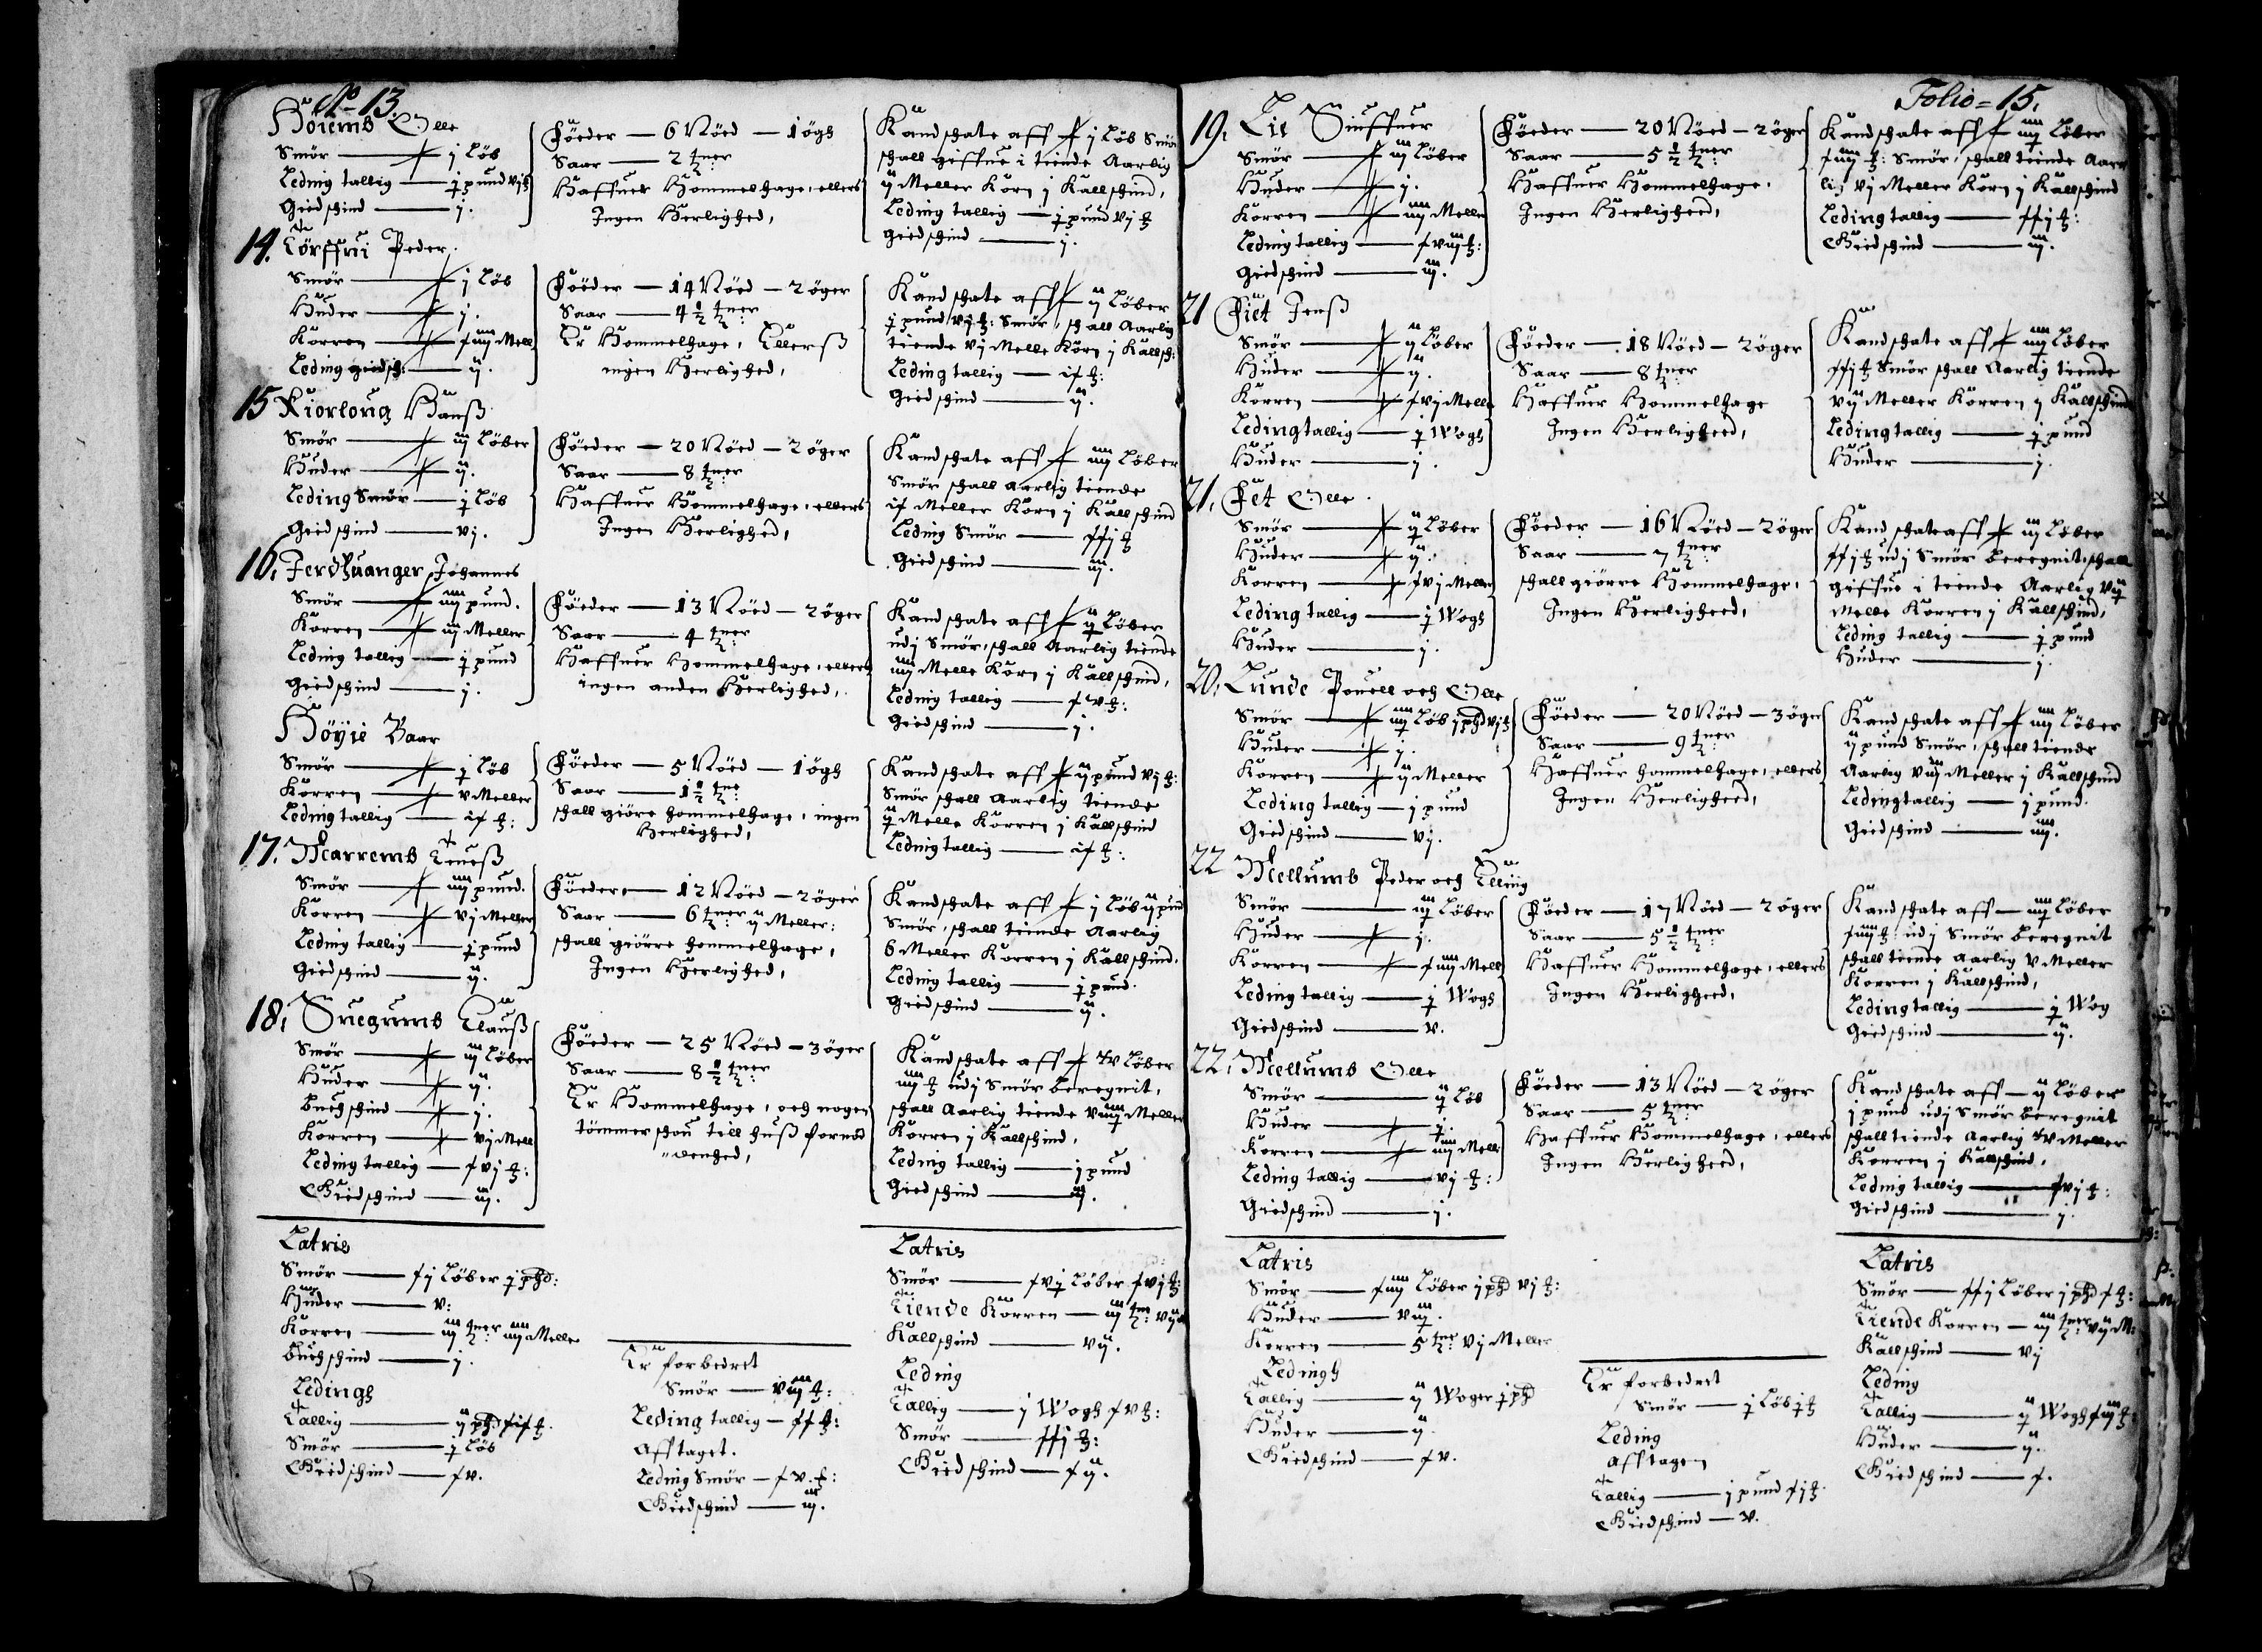 No 13.
Höiemb Olle
Smör — j Löb
Leding tallig — j pund vj ℔
Giedschind — j.
Föeder — 6 Nöed — 1 ögh
Saar — 2 tner
Haffuer Hommelhage, ellers
Ingen Herlighed,
Kand schate aff j Löb Smör
schall giffue i tiende Aarlig
ij Meller Korn j Kallschind,
Leding tallig — j pund vj ℔
Giedschind — j.
14. Peder.
Smör — j Löb
Huder — j.
Korren — Mell
Leding giedsch: — ij.
Föeder — 14 Nöed — 2 öger
Saar — 4 ½ tner
Er Hommelhage, Ellerß
ingen Herlighed,
Kand schate aff ij Löber
j pund vj ℔: Smör, schall Aarlig
tiende vj Melle Korn j Kallsch:
Leding tallig — ix ℔:
Giedschind — ij.
15 Kiorloug Hanß
Smör — iij Löber
Huder — ij.
Leding Smör — j Löb
Giedschind — vj.
Föeder — 20 Nöed — 2 öger
Saar — 8 tner
Haffuer Hommelhage, ellers
Ingen Herlighed,
Kand schate aff iiij Löber
Smör schall aarlig tiende
ix Meller Korn j Kallschind
Leding Smör — xxj ℔
Giedschind — iij.
16. Ferdhuanger Johannes
Smör — iiij pund.
Korren — iij Meller
Leding tallig — j pund
Giedschind — j.
Föeder — 13 Nöed — 2 öger
Saar — 4 tner
Haffuer Hommelhage, ellers
ingen anden Herlighed,
Kand schate aff ij Löber
udj Smör, schall Aarlig tiende
iiij Melle Korn j Kallschind,
Leding tallig — xv ℔:
Giedschind — j.
Höyie Baar
Smör — j Löb
Korren — v Meller
Leding tallig — ix ℔:
Föeder — 5 Nöed — 1 ögh
Saar — 1 ½ tne
schall giöre hommelhage, ingen
Herlighed,
Kand schate aff ij pund vj ℔:
Smör schall Aarlig tiende
ij Melle Korren j Kallschind
Leding tallig — ix ℔:
17. Marremb
Smör — iiij pund.
Korren — vj Meller
Leding tallig — j pund
Giedschind — ij.
Föeder — 12 Nöed — 2 öger
Saar — 6 tner ij Meller:
schall giörre hommelhage,
Ingen Herlighed,
Kand schate aff j Löb ij pund
Smör, schall tiende Aarlig
6 Meller Korren j Kallschind.
Leding tallig — j pund.
Giedschind — ij.
18. Suegumb Clauß
Smör — iij Löber
Huder — ij.
Buchschind — j.
Korren — vj Mell
Leding tallig — xvj ℔:
Giedschind — iij.
Föeder — 25 Nöed — 3 öger
Saar — 8 ½ tner
Er Hommelhage, och nogen
tömmer schou till huß fornöd
denhed,
Kand schate aff v Löber
iiij ℔ udj Smör beregnit,
schall Aarlig tiende viij Meller
Korren j Kallschind,
Leding tallig — j pund
Giedschind — iij.
Latris
Smör — xj Löber j phd:
Huder — v:
Korren — iij tner iiij Melle
Buchschind — j.
Ledingh
Tallig — ij phd xix ℔.
Smör — j Löb
Giedschind — xv.
Er forbedret
Smör — viij ℔:
Leding tallig — xx ℔:
Afftaget.
Leding Smör — xv ℔:
Giedschind — iij.
Latris
Smör — xvj Löber xvj ℔:
Tiende Korren — iij tner
Kallschind — vij.
Leding
Tallig — j Wogh xv ℔:
Smör — xxj ℔:
Giedschind — xij.
Folio = 15.
19. Lie Siuffuer
Smör — iij Löber
Huder — j.
Korren — iiij Melle
Leding tallig — xviij ℔:
Giedschind — iij.
Föeder — 20 Nöed — 2 öger
Saar — 5 ½ tner
Haffuer Hommelhage,
Ingen Herligheed,
Kand schate aff iiij Löber
xiiij ℔: Smör, schall tiende Aar
lig vj Meller Korn j Kallschind
Leding tallig — xxj ℔:
Giedschind — iij.
21 Fiet Jenß
Smör — ij Löber
Huder — ij.
Korren — xvj Melle
Leding tallig — j Wogh
Huder — j.
Föeder — 18 Nöed — 2 öger
Saar — 8 tner
Haffuer Hommelhage
Ingen Herligheed,
Kand schate aff iiij Löber
xxj ℔ Smör schall Aarlig tiende
vij Meller Korren j Kallschind
Leding tallig — j pund
Huder — j.
21. Fet Olle.
Smör — ij Löber
Huder — ij.
Korren — xvj Meller
Leding tallig — j Wogh
Huder — j.
Föeder — 16 Nöed — 2 öger
Saar — 7 tner
schall giörre Hommelhage,
Ingen Herligheed,
Kand schate aff iij Löber
xxj ℔ udj Smör beregnit, schall
giffue i tiende Aarlig vij
Melle Korren j Kallschind,
Leding tallig — j pund
Huder — j.
20. Lunde Pouell och Olle
Smör — iiij Löb j phd vj ℔
Huder — j.
Korren — ij Meller
Leding tallig — j pund
Giedschind — vj.
Föeder — 20 Nöed — 3 öger
Saar — 9 tner
Haffuer hommelhage, ellers
Ingen Herligheed,
Kand schate aff iiij Löber
ij pund Smör, schall tiende
Aarlig viij Meller j Kallschind
Leding tallig — j pund.
Giedschind — iiij.
22 Mellumb Peder och Elling
Smör — iij Löber
Huder — j.
Korren — xiiij Mell
Leding tallig — j Wogh
Giedschind — v.
Föeder — 17 Nöed — 2 öger
Saar — 5 ½ tner
Haffuer Hommelhage, ellers
Ingen Herligheed,
Kand schate aff — iiij Löber
xiiij ℔: udj Smör beregnit
schall tiende Aarlig v Meller
Korren j Kallschind,
Leding tallig — j Wog
Giedschind — ij.
22. Mellumb Olle
Smör — ij Löb
Huder — j.
Korren — iiij Mell
Leding tallig — vj ℔:
Giedschind — j.
Föeder — 13 Nöed — 2 öger
Saar — 5 tner
Haffuer Hommelhage, ellers
Ingen Herligheed,
Kand schate aff — ij Löber
j pund udj Smör beregnit
schall tiende Aarlig v Meller
Korren j Kallschind,
Leding tallig — xvj ℔:
Giedschind — j.
Latris
Smör — xiiij Löber j phd vj ℔:
Huder — viij.
Korren — 5 tner vj Meller
Ledingh
Tallig — ij Woger j phd
Huder — ij.
Giedschind — xv.
Er forbedret
Smör — j Löb j ℔
Leding
afftagen
Tallig — j pund xj ℔.
Giedschind — v.
Latris
Smör — xxj Löber j phd x ℔:
Tiende Korren — iij tner vij M:
Kallschind — vj
Leding
Tallig — ij Wogh xiij ℔:
Huder — ij.
Giedschind — x.